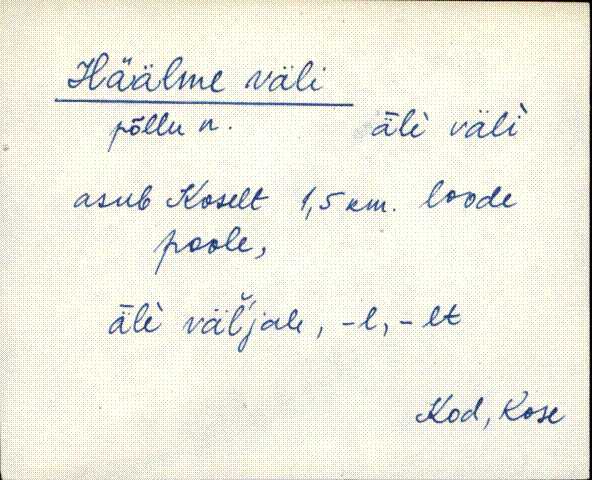 Häälme väli
põllu n. ǟlì välì
asub Koselt 1,5 km. loode
poole,
ǟlì väl̆'jale, -l, -lt
Kod, Kose